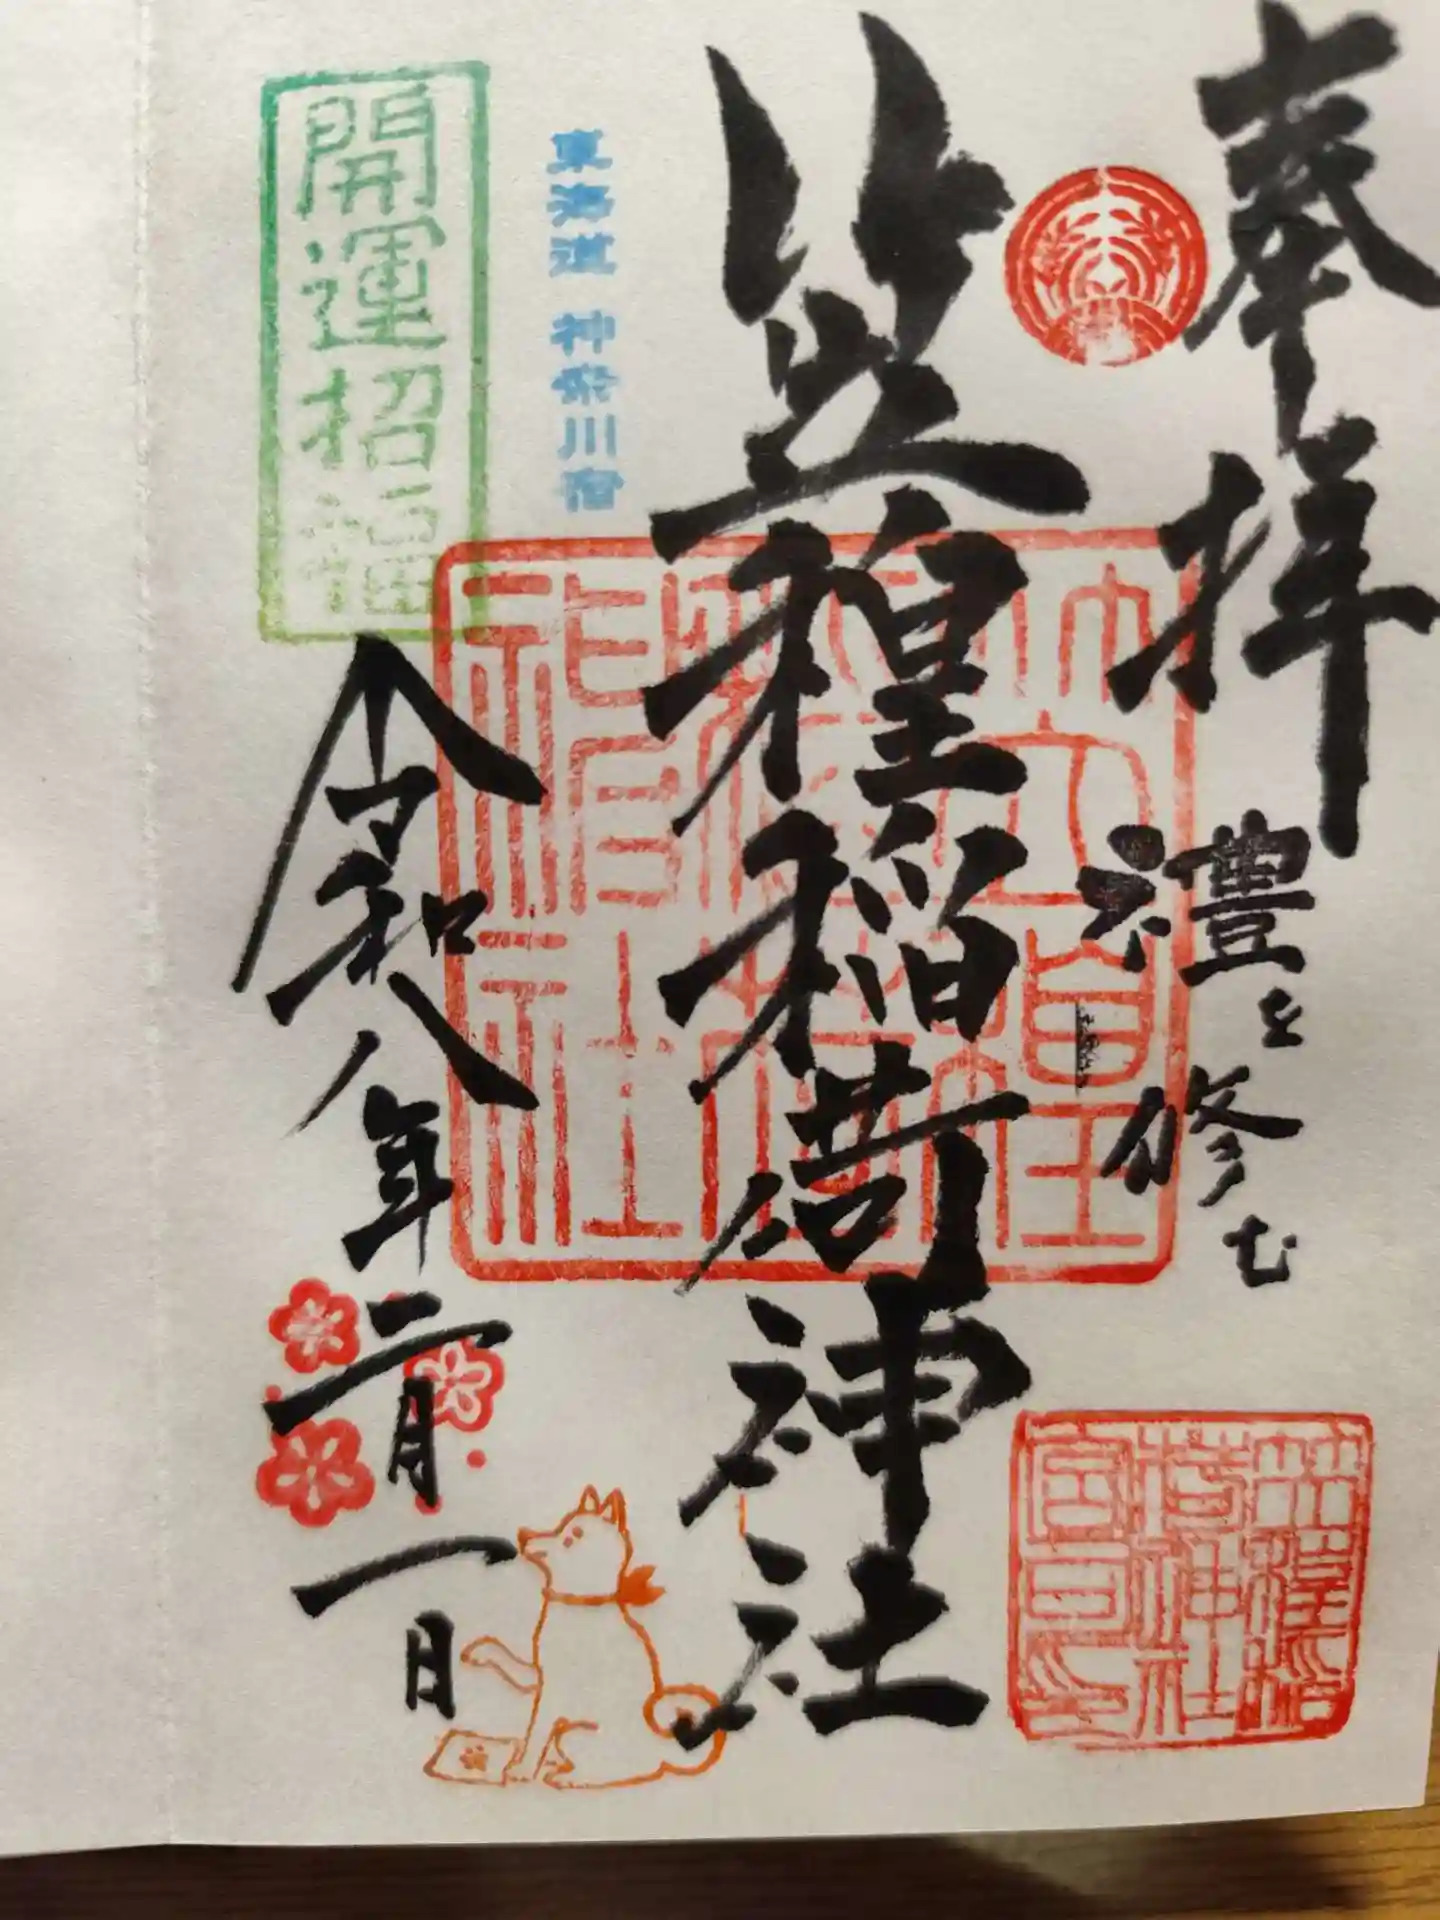 奉拝
禮を修む
笠䅣稲荷神社
東海道 神奈川宿
開運招福
令和八年二月一日
笠䅣稲
荷神社
宮司之印